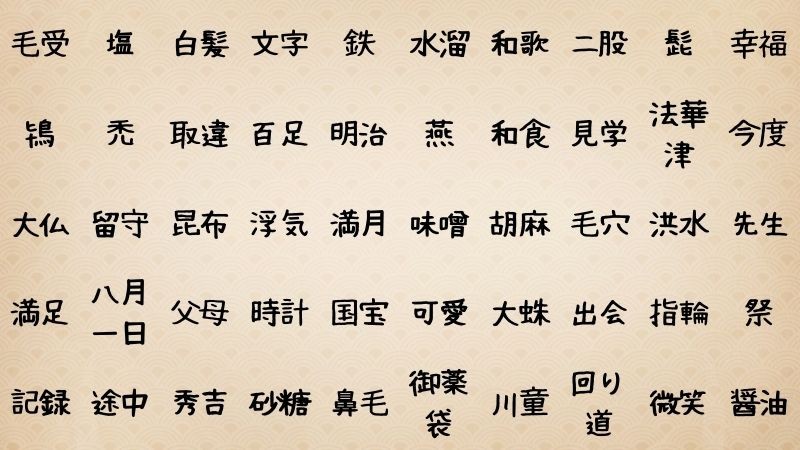 毛受 塩 白髪 文字 鉄 水溜 和歌 二股 髭 幸福
鴇 禿 取違 百足 明治 燕 和食 見学 法華津 今度
大仏 留守 昆布 浮気 満月 味噌 胡麻 毛穴 洪水 先生
満足 八月一日 父母 時計 国宝 可愛 大蛛 出会 指輪 祭
記録 途中 秀吉 砂糖 鼻毛 御薬袋 川童 回り道 微笑 醤油